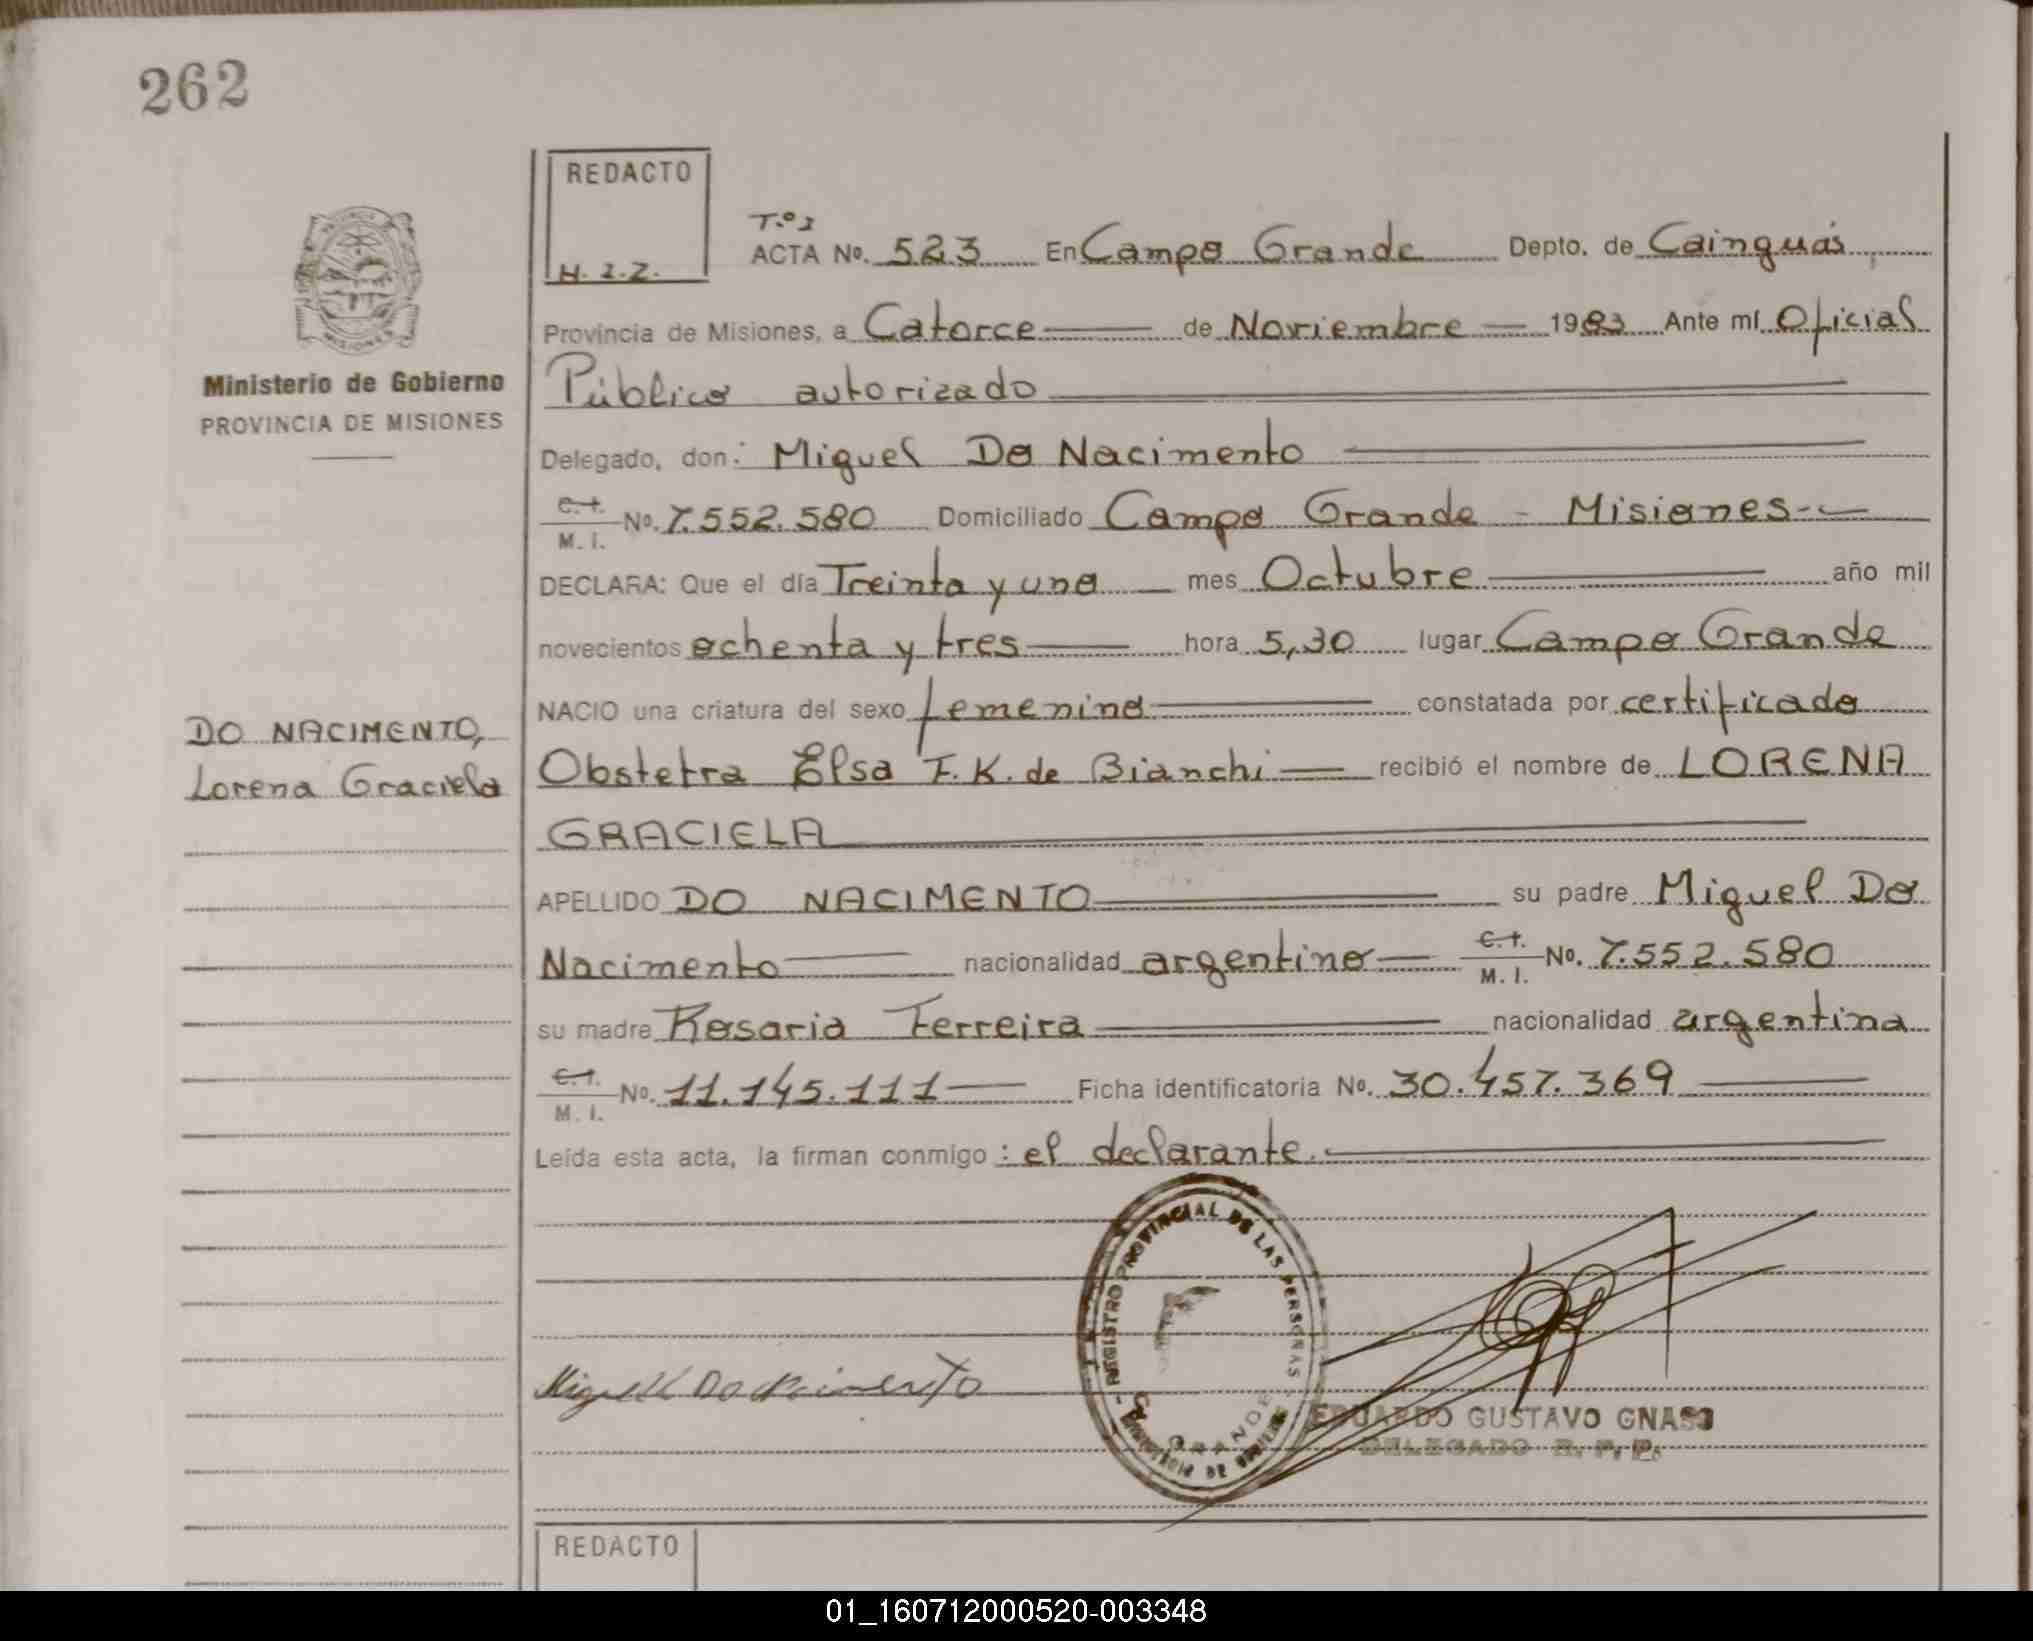 262
REDACTO
H.I.Z.
T.º 1
ACTA No. 523 En Campo Grande Depto. de Cainguás
Provincia de Misiones, a Catorce de Noviembre 1983 Ante mí Oficial
Público autorizado
Ministerio de Gobierno
PROVINCIA DE MISIONES
Delegado, don: Miguel Do Nacimento
C.I. M.I. No. 7.552.580 Domiciliado Campo Grande - Misiones-
DECLARA: Que el día Treinta y uno mes Octubre año mil
novecientos ochenta y tres hora 5,30 lugar Campo Grande
NACIO una criatura del sexo femenino constatada por certificado
DO NACIMENTO,
Lorena Graciela
Obstetra Elsa F.K. de Bianchi recibió el nombre de LORENA
GRACIELA
APELLIDO DO NACIMENTO su padre Miguel Do
Nacimento nacionalidad argentino C.I. M.I. No. 7.552.580
su madre Rosaria Ferreira nacionalidad argentina
C.I. M.I. No. 11.145.111 Ficha identificatoria No. 30.457.369
Leída esta acta, la firman conmigo: el declarante.
REGISTRO PROVINCIAL DE LAS PERSONAS
GRANDE
Miguel Do Nacimento
EDUARDO GUSTAVO GNASS
DELEGADO R. P. P.
REDACTO
01_160712000520-003348